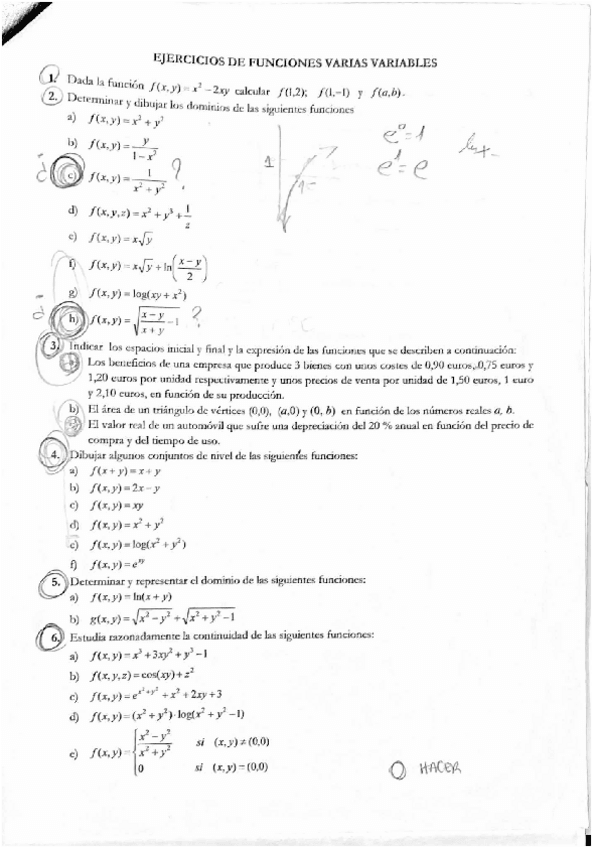 EJERCICIOS DE FUNCIONES VARIAS VARIABLES
1. Dada la función f(x,y) = x² − 2xy calcular f(1,2); f(1,−1) y f(a,b).
2. Determinar y dibujar los dominios de las siguientes funciones
a) f(x,y) = x² + y²
e⁰=1
b) f(x,y) = y/(1−x²)
e¹=e
1
c) f(x,y) = 1/(x² + y²) ?
1
d) f(x,y,z) = x² + y³ + 1/z
e) f(x,y) = x√y
f) f(x,y) = x√y + ln((x−y)/2)
g) f(x,y) = log(xy + x²)
h) f(x,y) = √((x−y)/(x+y) −1) ?
3. Indicar los espacios inicial y final y la expresión de las funciones que se describen a continuación:
Los beneficios de una empresa que produce 3 bienes con unos costes de 0,90 euros, 0,75 euros y
1,20 euros por unidad respectivamente y unos precios de venta por unidad de 1,50 euros, 1 euro
y 2,10 euros, en función de su producción.
b) El área de un triángulo de vértices (0,0), (a,0) y (0, b) en función de los números reales a, b.
El valor real de un automóvil que sufre una depreciación del 20 % anual en función del precio de
compra y del tiempo de uso.
4. Dibujar algunos conjuntos de nivel de las siguientes funciones:
a) f(x + y) = x + y
b) f(x,y) = 2x − y
c) f(x,y) = xy
d) f(x,y) = x² + y²
e) f(x,y) = log(x² + y²)
f) f(x,y) = e^xy
5. Determinar y representar el dominio de las siguientes funciones:
a) f(x,y) = ln(x + y)
b) g(x,y) = √(x² − y²) + √(x² + y² −1)
6. Estudia razonadamente la continuidad de las siguientes funciones:
a) f(x,y) = x³ + 3xy² + y³ −1
b) f(x,y,z) = cos(xy) + z²
c) f(x,y) = e^(x²+y²) + x² + 2xy + 3
d) f(x,y) = (x² + y²)·log(x² + y² −1)
e) f(x,y) = { (x² − y²)/(x² + y²) si (x,y) ≠ (0,0)
0 si (x,y) = (0,0)
HACER